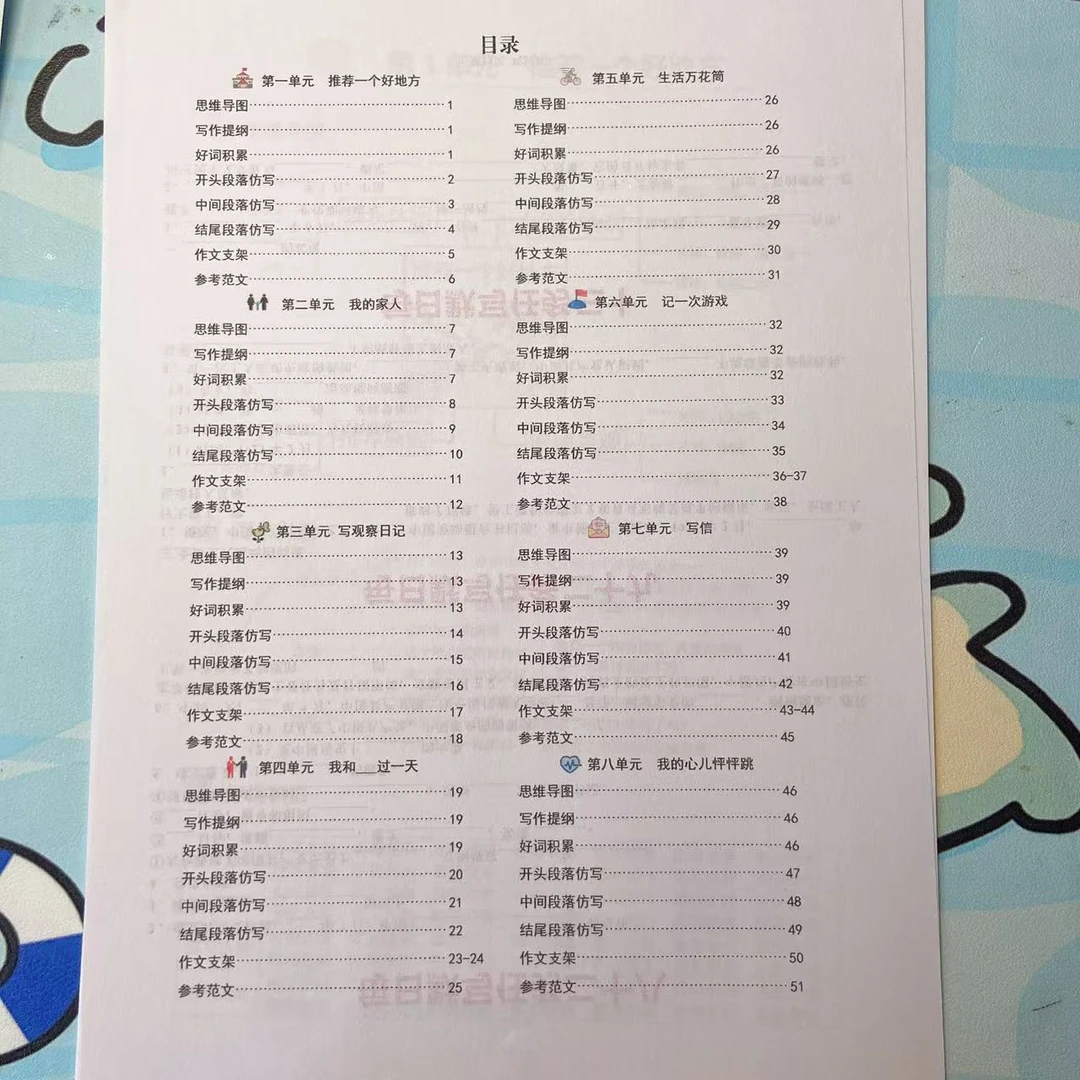 目录
第一单元 推荐一个好地方
思维导图 1
写作提纲 1
好词积累 1
开头段落仿写 2
中间段落仿写 3
结尾段落仿写 4
作文支架 5
参考范文 6
第二单元 我的家人
思维导图 7
写作提纲 7
好词积累 7
开头段落仿写 8
中间段落仿写 9
结尾段落仿写 10
作文支架 11
参考范文 12
第三单元 写观察日记
思维导图 13
写作提纲 13
好词积累 13
开头段落仿写 14
中间段落仿写 15
结尾段落仿写 16
作文支架 17
参考范文 18
第四单元 我和___过一天
思维导图 19
写作提纲 19
好词积累 19
开头段落仿写 20
中间段落仿写 21
结尾段落仿写 22
作文支架 23-24
参考范文 25
第五单元 生活万花筒
思维导图 26
写作提纲 26
好词积累 26
开头段落仿写 27
中间段落仿写 28
结尾段落仿写 29
作文支架 30
参考范文 31
第六单元 记一次游戏
思维导图 32
写作提纲 32
好词积累 32
开头段落仿写 33
中间段落仿写 34
结尾段落仿写 35
作文支架 36-37
参考范文 38
第七单元 写信
思维导图 39
写作提纲 39
好词积累 39
开头段落仿写 40
中间段落仿写 41
结尾段落仿写 42
作文支架 43-44
参考范文 45
第八单元 我的心儿怦怦跳
思维导图 46
写作提纲 46
好词积累 46
开头段落仿写 47
中间段落仿写 48
结尾段落仿写 49
作文支架 50
参考范文 51